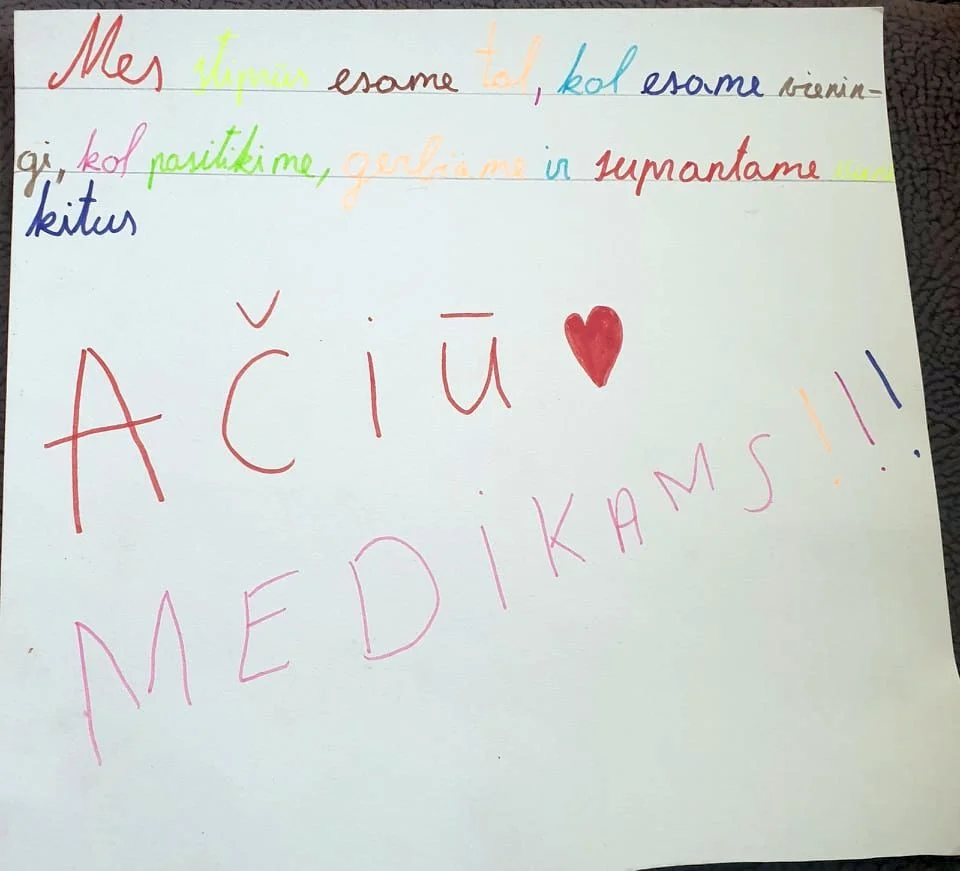 Mes stiprūs esame tol, kol esame vienin-
gi, kol pasitikime, gerbiame ir suprantame vieni
kitus
AČiŪ
MEDiKAMS!!!